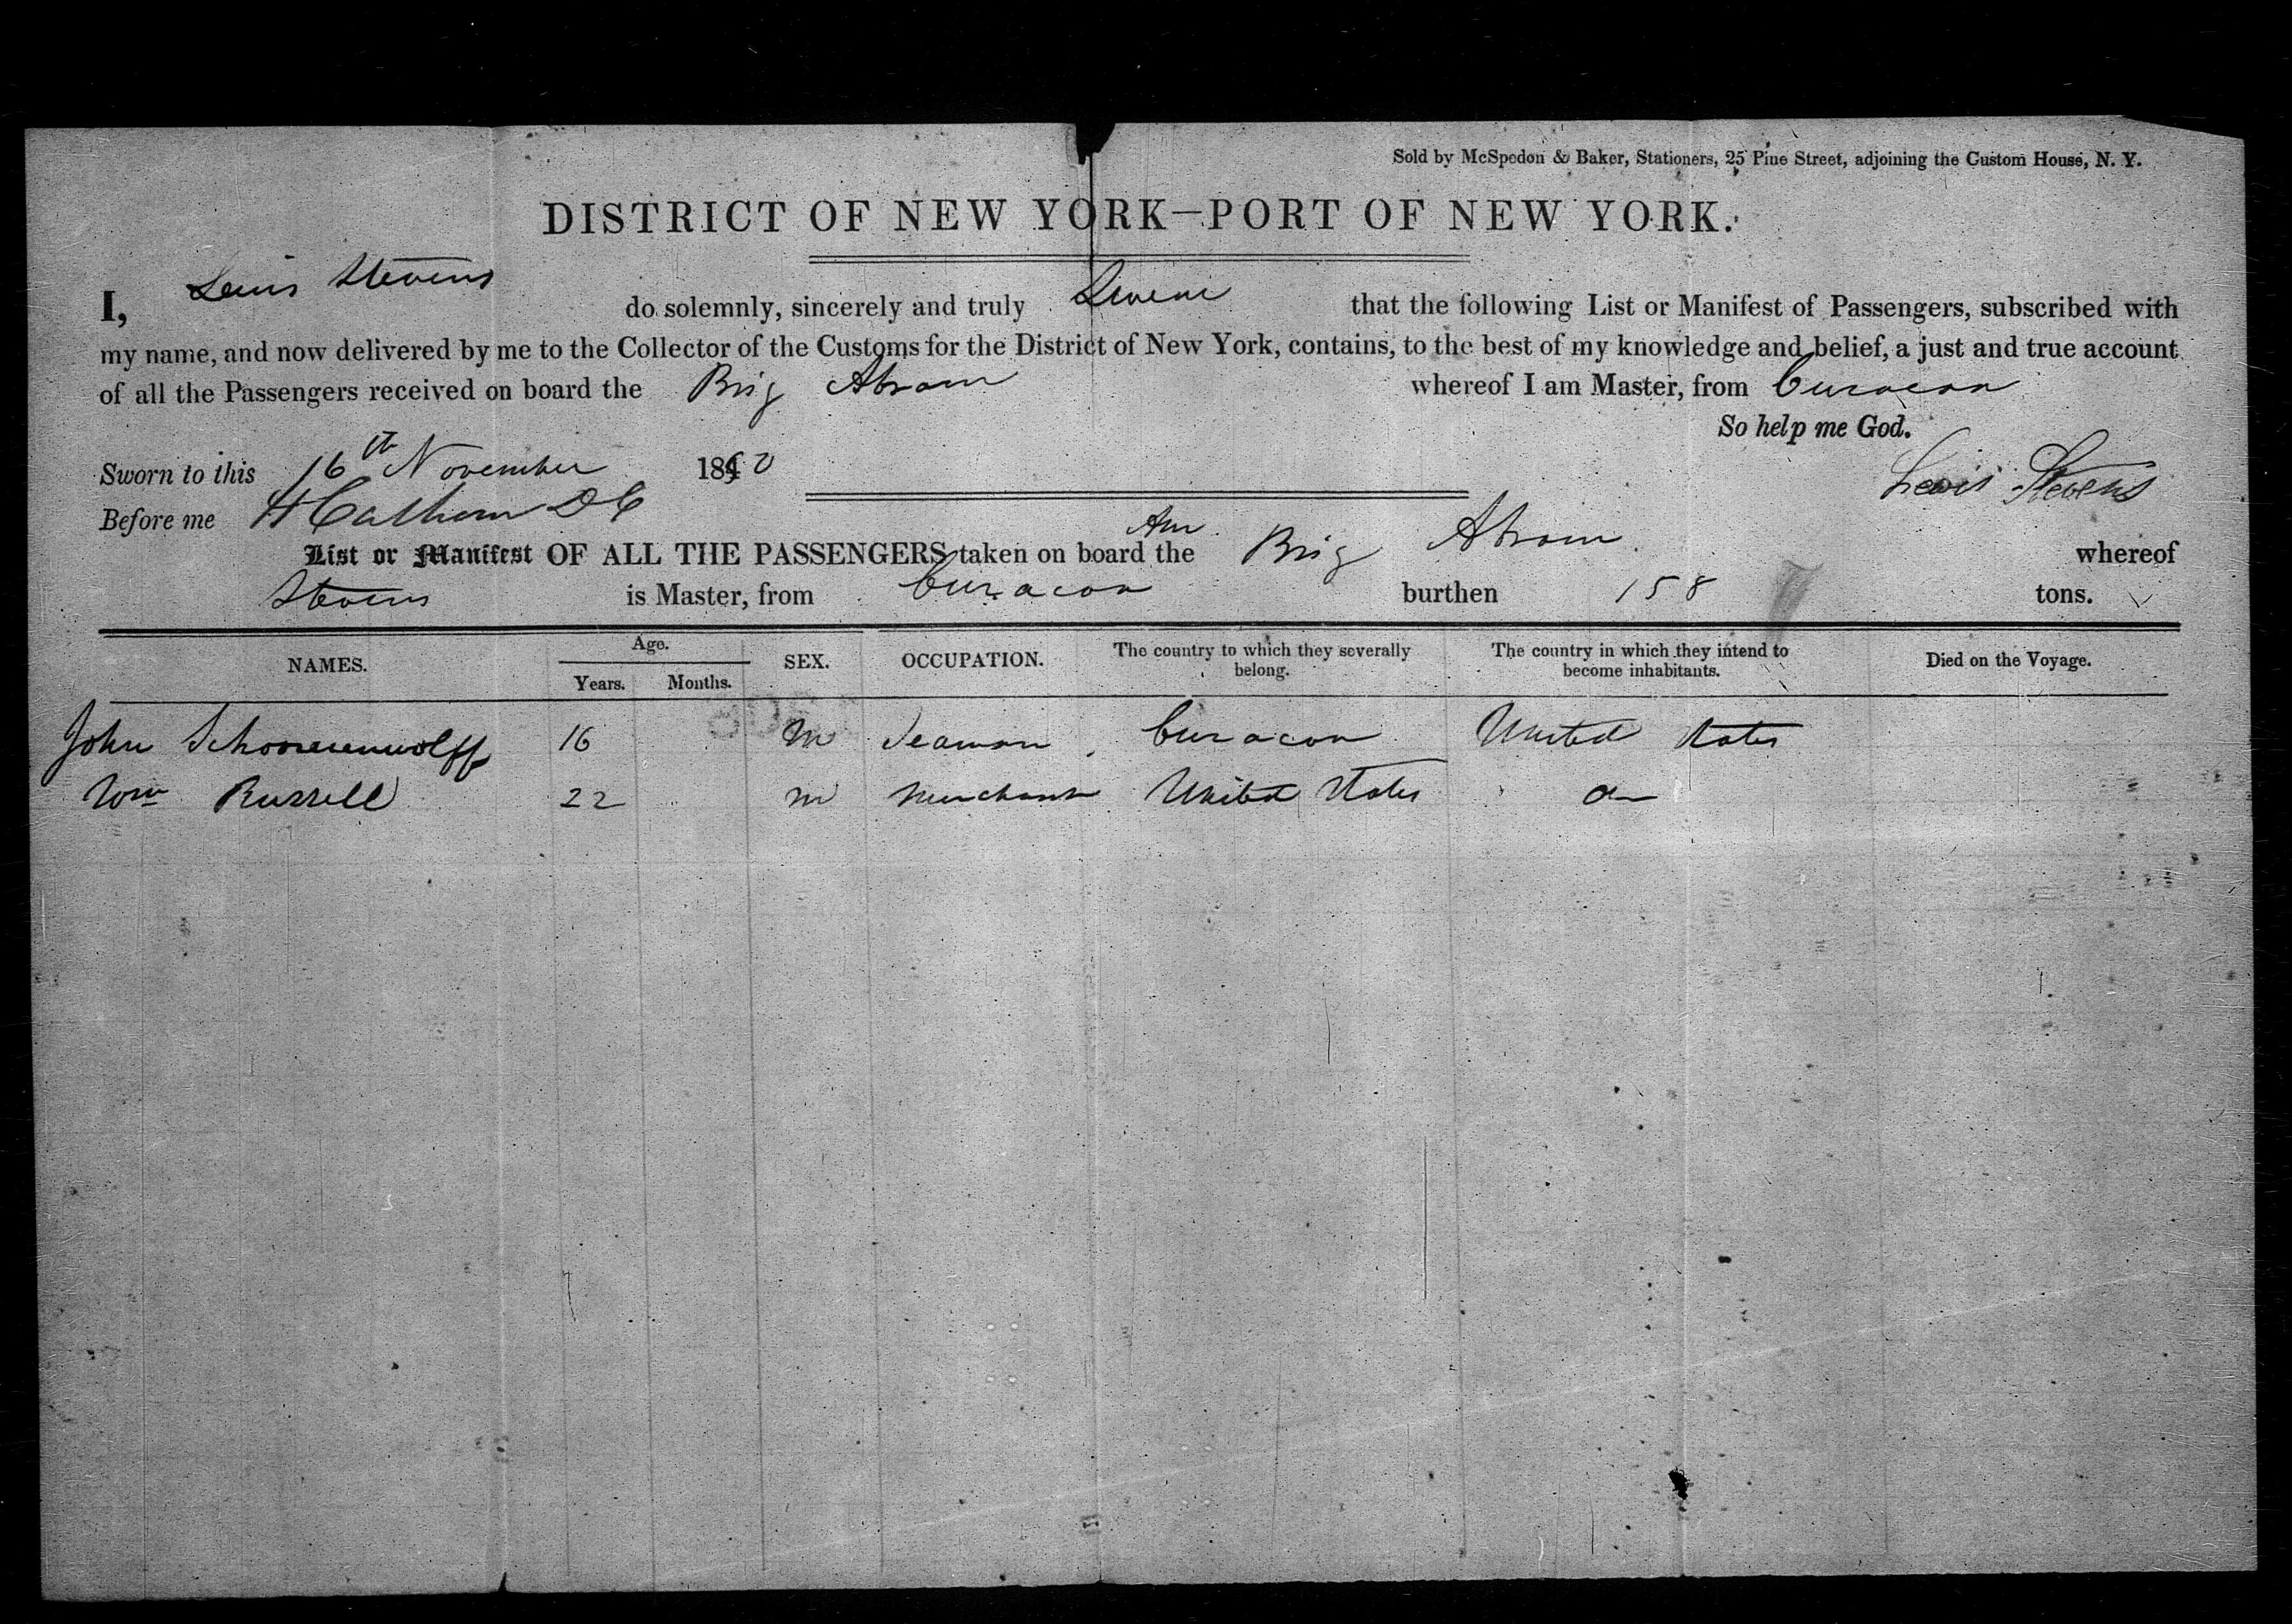 Sold by McSpedon & Baker, Stationers, 25 Pine Street, adjoining the Custom House, N. Y.
DISTRICT OF NEW YORK—PORT OF NEW YORK.
I, Lewis Stevens do solemnly, sincerely and truly Swear that the following List or Manifest of Passengers, subscribed with
my name, and now delivered by me to the Collector of the Customs for the District of New York, contains, to the best of my knowledge and belief, a just and true account
of all the Passengers received on board the Brig Abram whereof I am Master, from Curacoa
So help me God.
Sworn to this 16th November 1850 Lewis Stevens
Before me H Calhoun D C
List or Manifest OF ALL THE PASSENGERS taken on board the Am Brig Abram whereof
Stevens is Master, from Curacoa burthen 158 tons.
NAMES. Age. Years. Months. SEX. OCCUPATION. The country to which they severally belong. The country in which they intend to become inhabitants. Died on the Voyage.
John 16 M Seaman Curacoa United States
Wm Russell 22 M Merchant United States Do